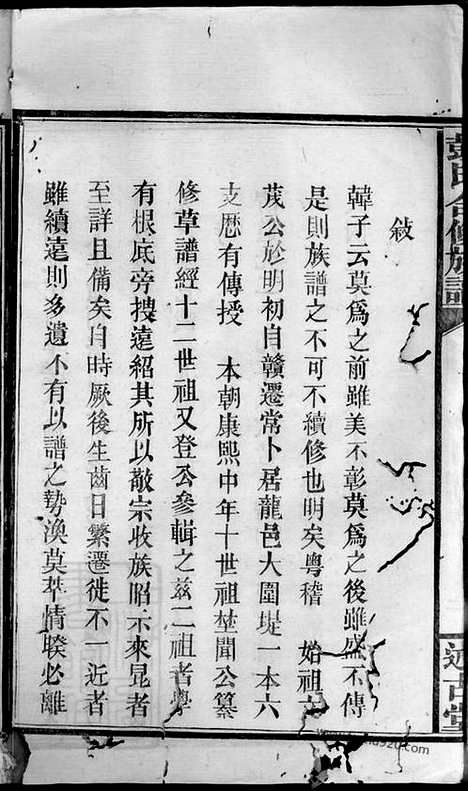 彭氏合修族譜
述古堂
敍
韓子云莫爲之前雖美不彰莫爲之後雖盛不傳
是則族譜之不可不續修也明矣粵稽 始祖
茂公於明初自贛遷常卜居龍邑大圍堤一本六
支歷有傳授 本朝康熙中年十世祖埜聞公纂
修草譜經十二世祖又登公參輯之茲二祖者學
有根底旁搜遠紹其所以敬宗收族昭示來昆者
至詳且備矣自時厥後生齒日繁遷徙不一近者
雖續遠則多遺不有以譜之勢渙莫萃情暌必離